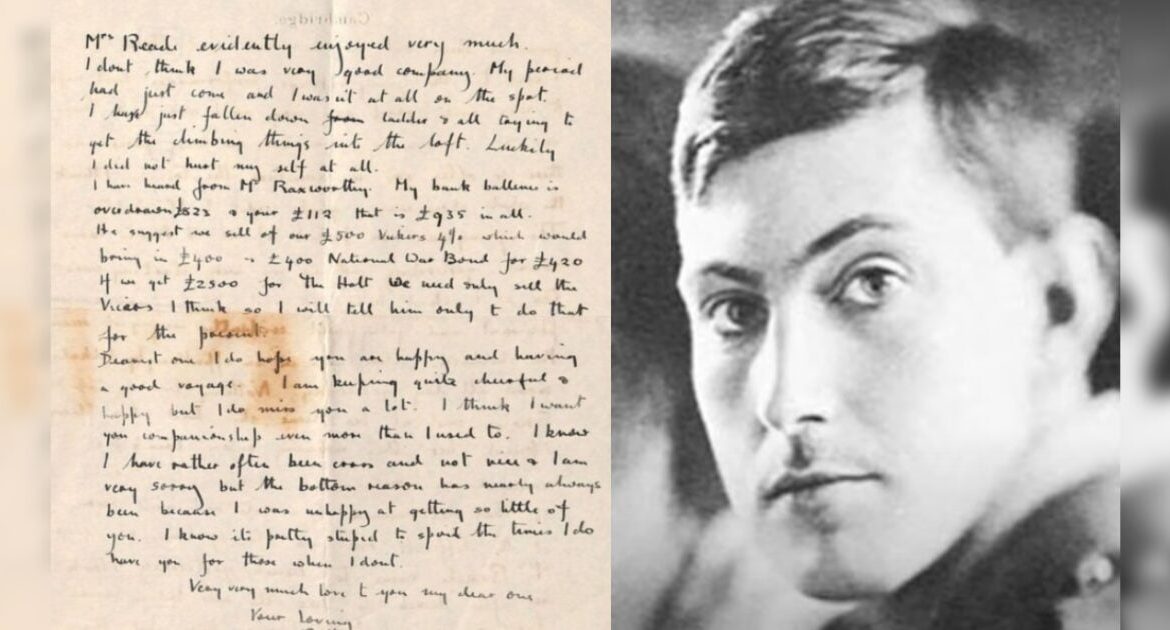 Cambridge.
Mrs Reade evidently enjoyed very much.
I dont think I was very good company. My period
had just come and I wasn't at all on the spot.
I have just fallen down from ladder & all trying to
get the climbing things into the loft. Luckily
I did not hurt my self at all.
I have heard from Mr Raxworthy. My bank ballence is
overdrawn £823 & your £112 that is £935 in all.
He suggest we sell of our £500 Vickers 4% which would
bring in £400 & £400 National War Bond for £420
If we get £2500 for The Holt we need only sell the
Vicars I think so I will tell him only to do that
for the present.
Dearest one I do hope you are happy and having
a good voyage. I am keeping quite cheerful &
happy but I do miss you a lot. I think I want
you companionship even more than I used to. I know
I have rather often been cross and not nice & I am
very sorry but the bottom reason has nearly always
been because I was unhappy at getting so little of
you. I know its pretty stupid to spoil the times I do
have you for those when I dont.
Very very much love to you my dear one
Your loving